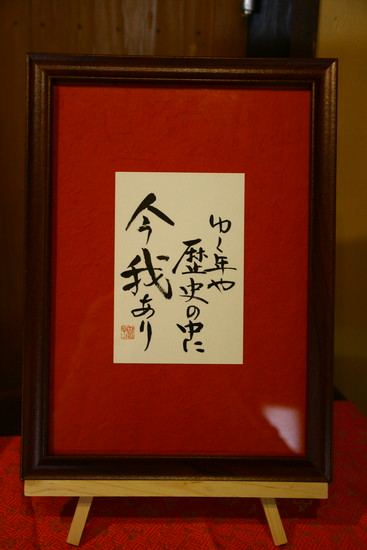 ゆく年や
歴史の中に
今我あり